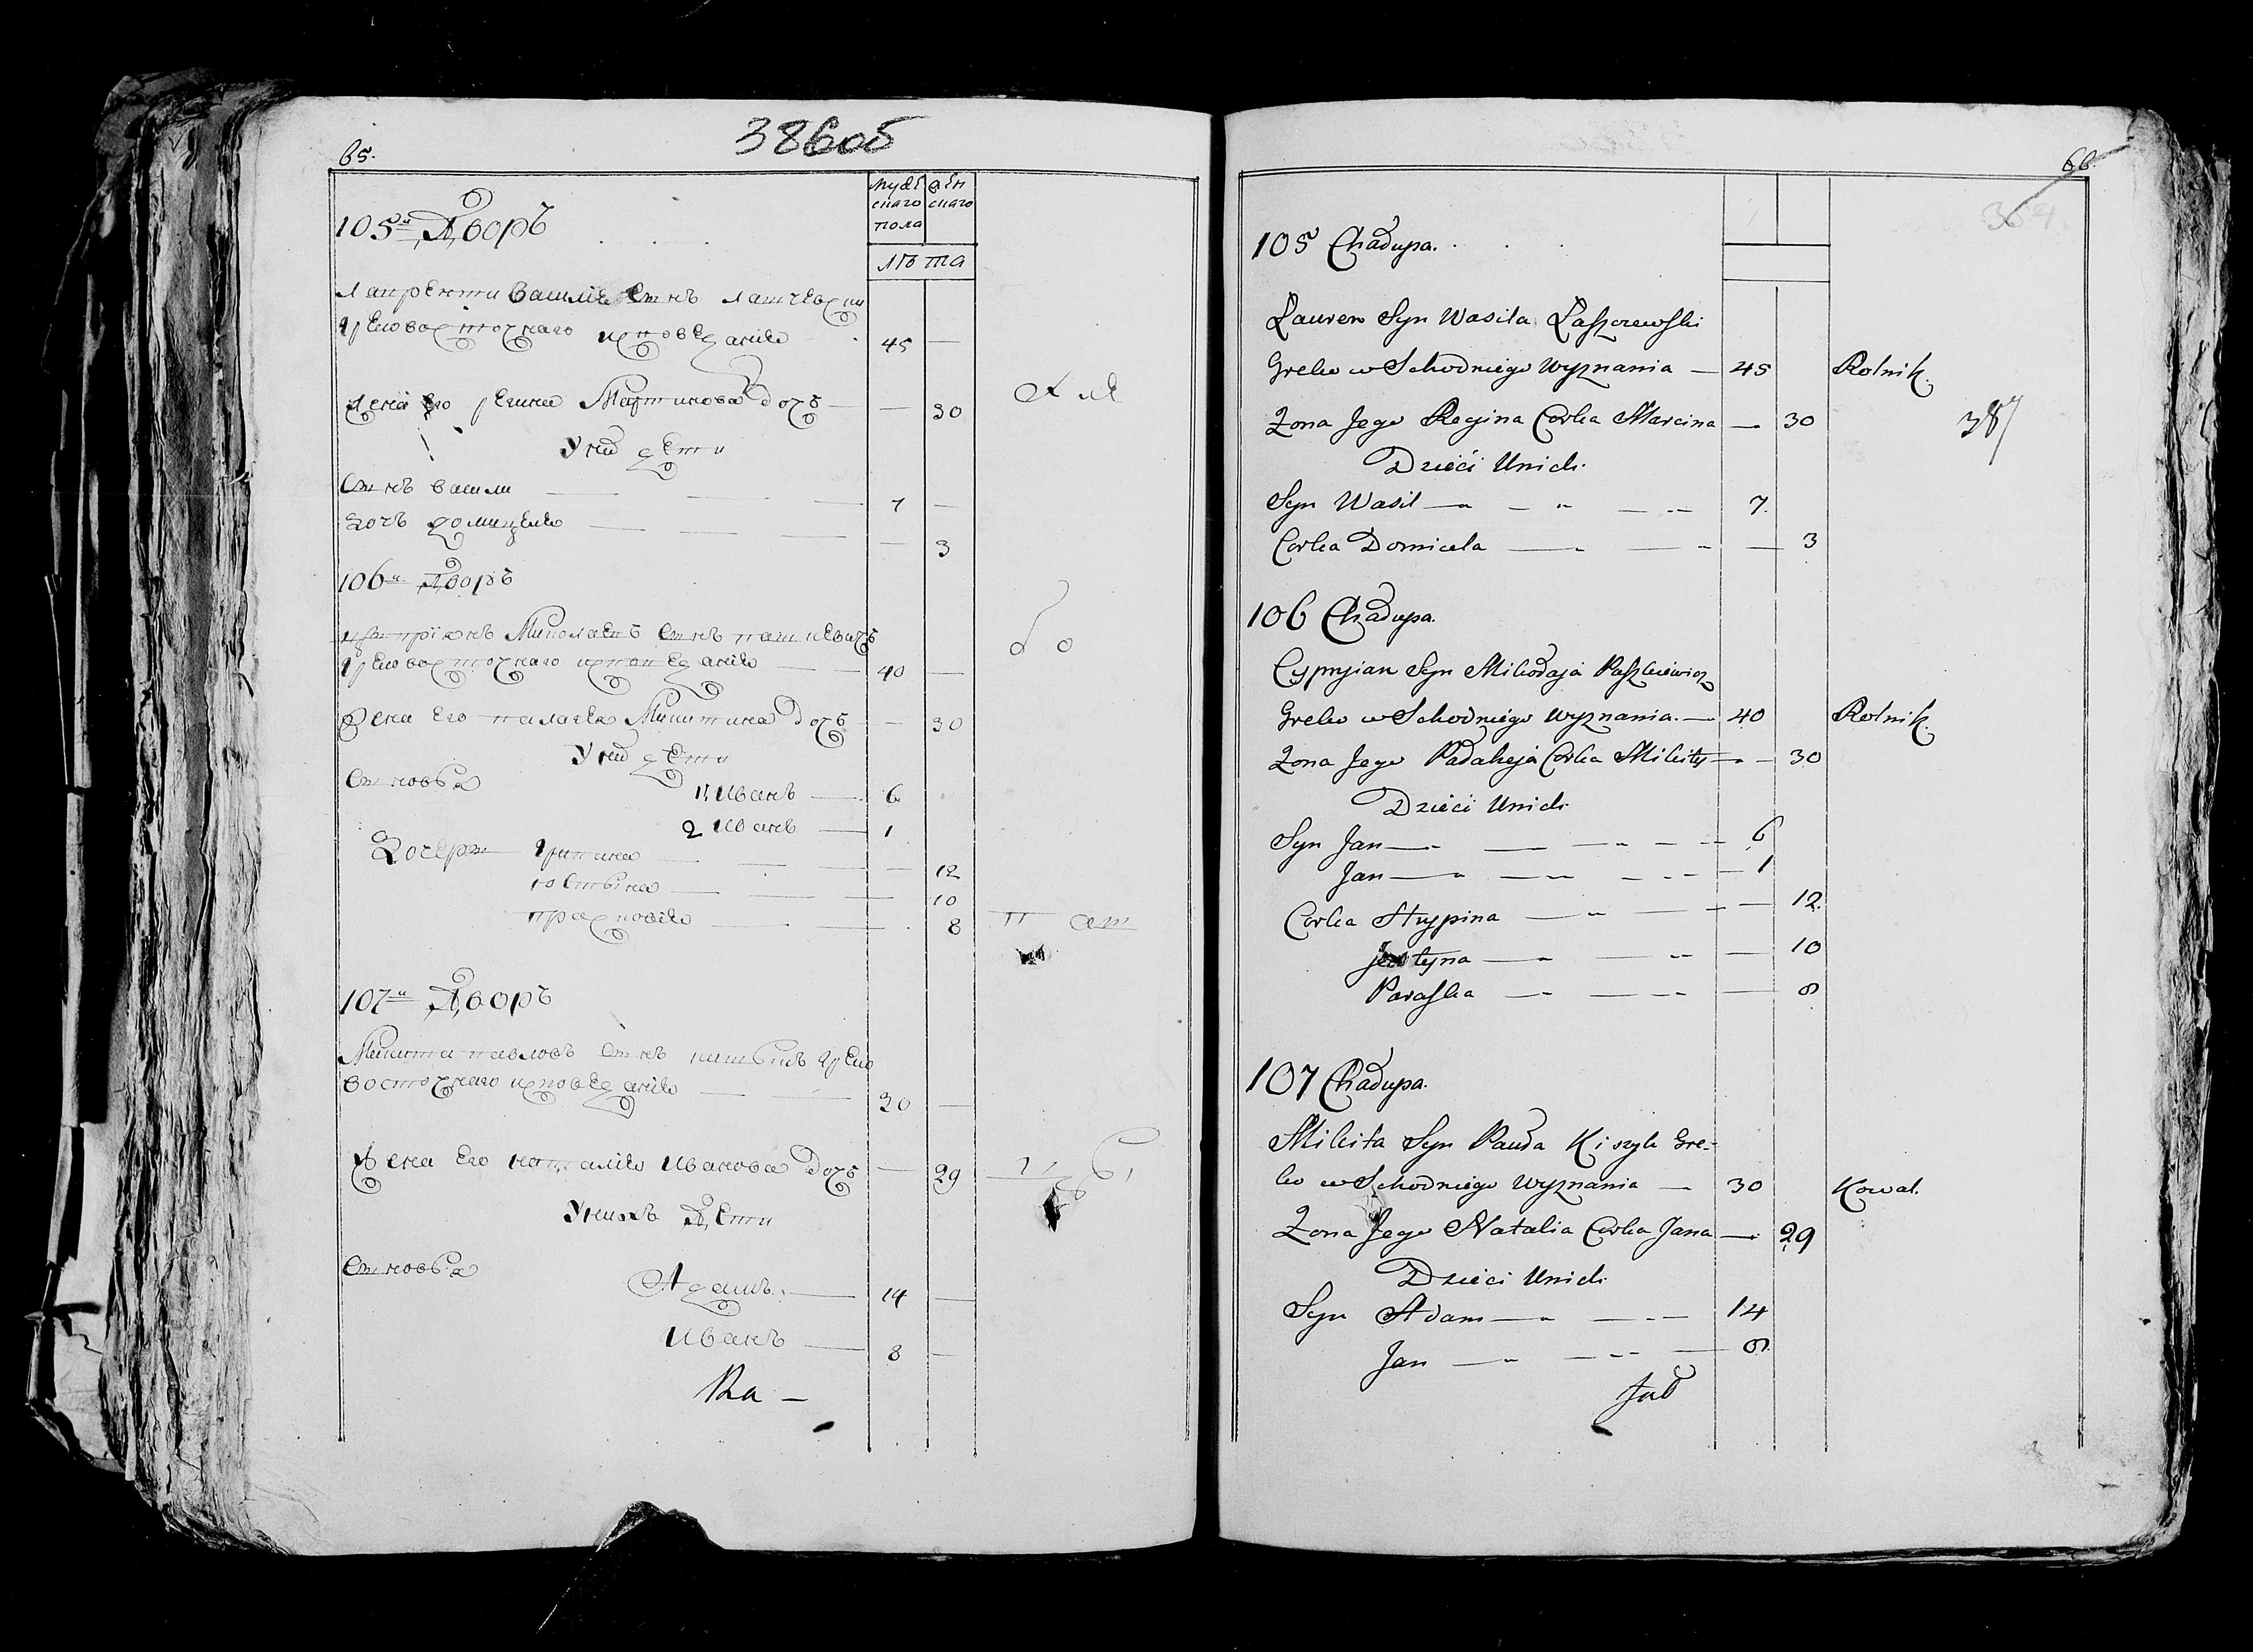 65.
386об
мужескаго пола
женскаго
лѣта
105й Дворъ
Лаврентий Василiевъ сынъ Лашчевски
грековосточнаго исповеданiя 45 —
Жена Его регина Мартинова дочъ — — 30
У них дети
Сынъ васили 7 —
Дочъ домицеля — 3
106й Дворъ
Цыпрiянъ Миколаевъ сынъ пашкевичъ
грековосточнаго исповеданiя 40 —
Жена Его палагея Микитина дочъ — 30
У них дети
Сыновья 1, Иванъ 6
2 Иванъ 1
Дочери Грипина — 12
юстына — 10
прасковiя — 8
107й Дворъ
Микита павловъ сынъ кишыкъ греко
восточнаго исповеданiя 30 —
Жена Его наталiя Иванова дочъ — 29
У нихъ Дети
Сыновья
Адамъ 14 —
Иванъ 8 —
Ка —
66.
364.
105 Chałupa.
Lauren Syn Wasila Laszczewski
Greko wschodniego Wyznania — 45 Rolnik.
Zona Jego Regina Corka Marcina — 30
387
Dzieci Unich
Syn Wasil — 7.
Corka Domicela — 3
106 Chałupa.
Cypryian Syn Mikołaja Paszkiewicz
Greko wschodniego wyznania. — 40 Rolnik.
Zona Jego Pałaheja Corka Mikity — 30
Dzieci Unich
Syn Jan — 6
Jan — 1
Corka Hrypina — 12.
Justyna — 10
Paraska — 8
107 Chałupa.
Mikita Syn Pauła Kiszyk Gre-
ko wschodniego Wyznania — 30 Kowal.
Zona Jego Natalia Corka Jana — 29
Dzieci Unich
Syn Adam — 14
Jan — 8.